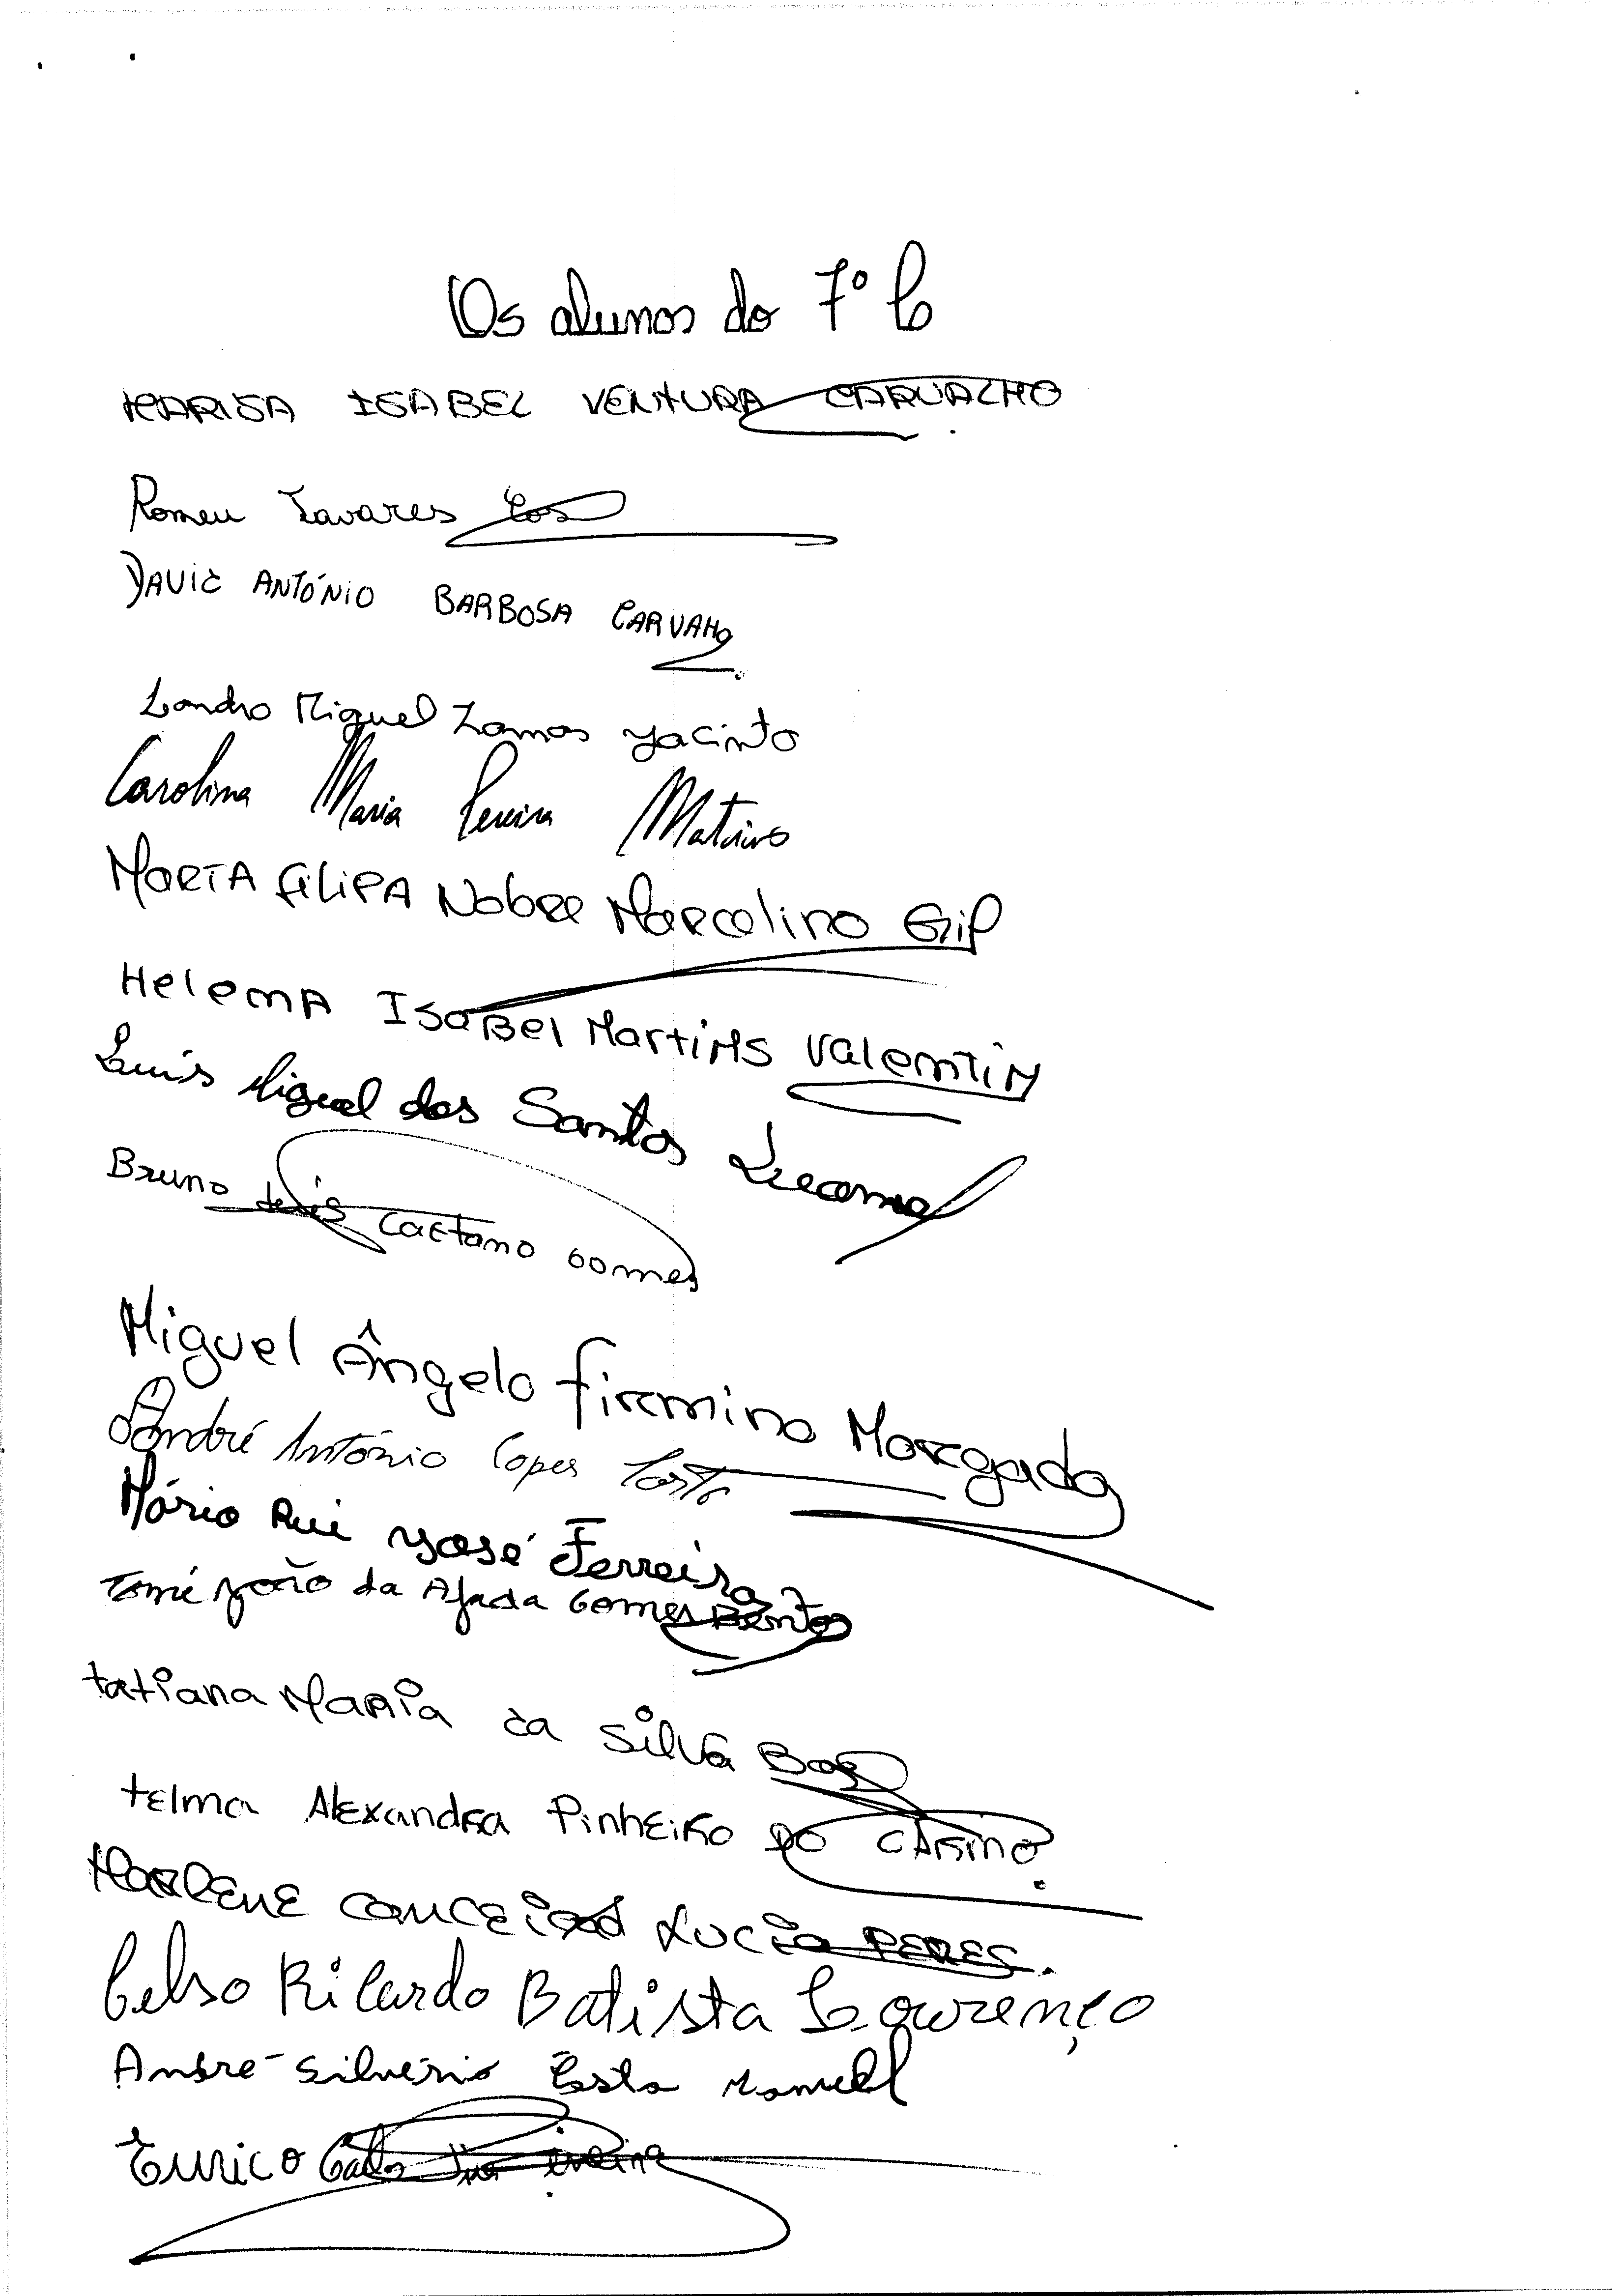 Os alunos do 7º C
MARISA ISABEL VENTURA CARVALHO
Romeu Tavares
DAVID ANTÓNIO BARBOSA CARVAHO
Miguel Ramos Jacinto
Carolina Maria Pereira
MARTA FILIPA Nobre Marcolino Gil
Helena ISABEL Martins Valentin
Luís Miguel dos Santos
Bruno Caetano Gomes
Miguel Ângelo Firmino Morgado
André António Lopes Costa
Mário Rui José Ferreira
Tomé João da Ajuda Gomes Bento
Tatiana Maria da Silva
Telma Alexandra Pinheiro DO
MARLENE CONCEIÇÃO LUCIO PERES.
Celso Ricardo Batista Lourenço
André Silvério Costa Manuel
Eurico Carlos